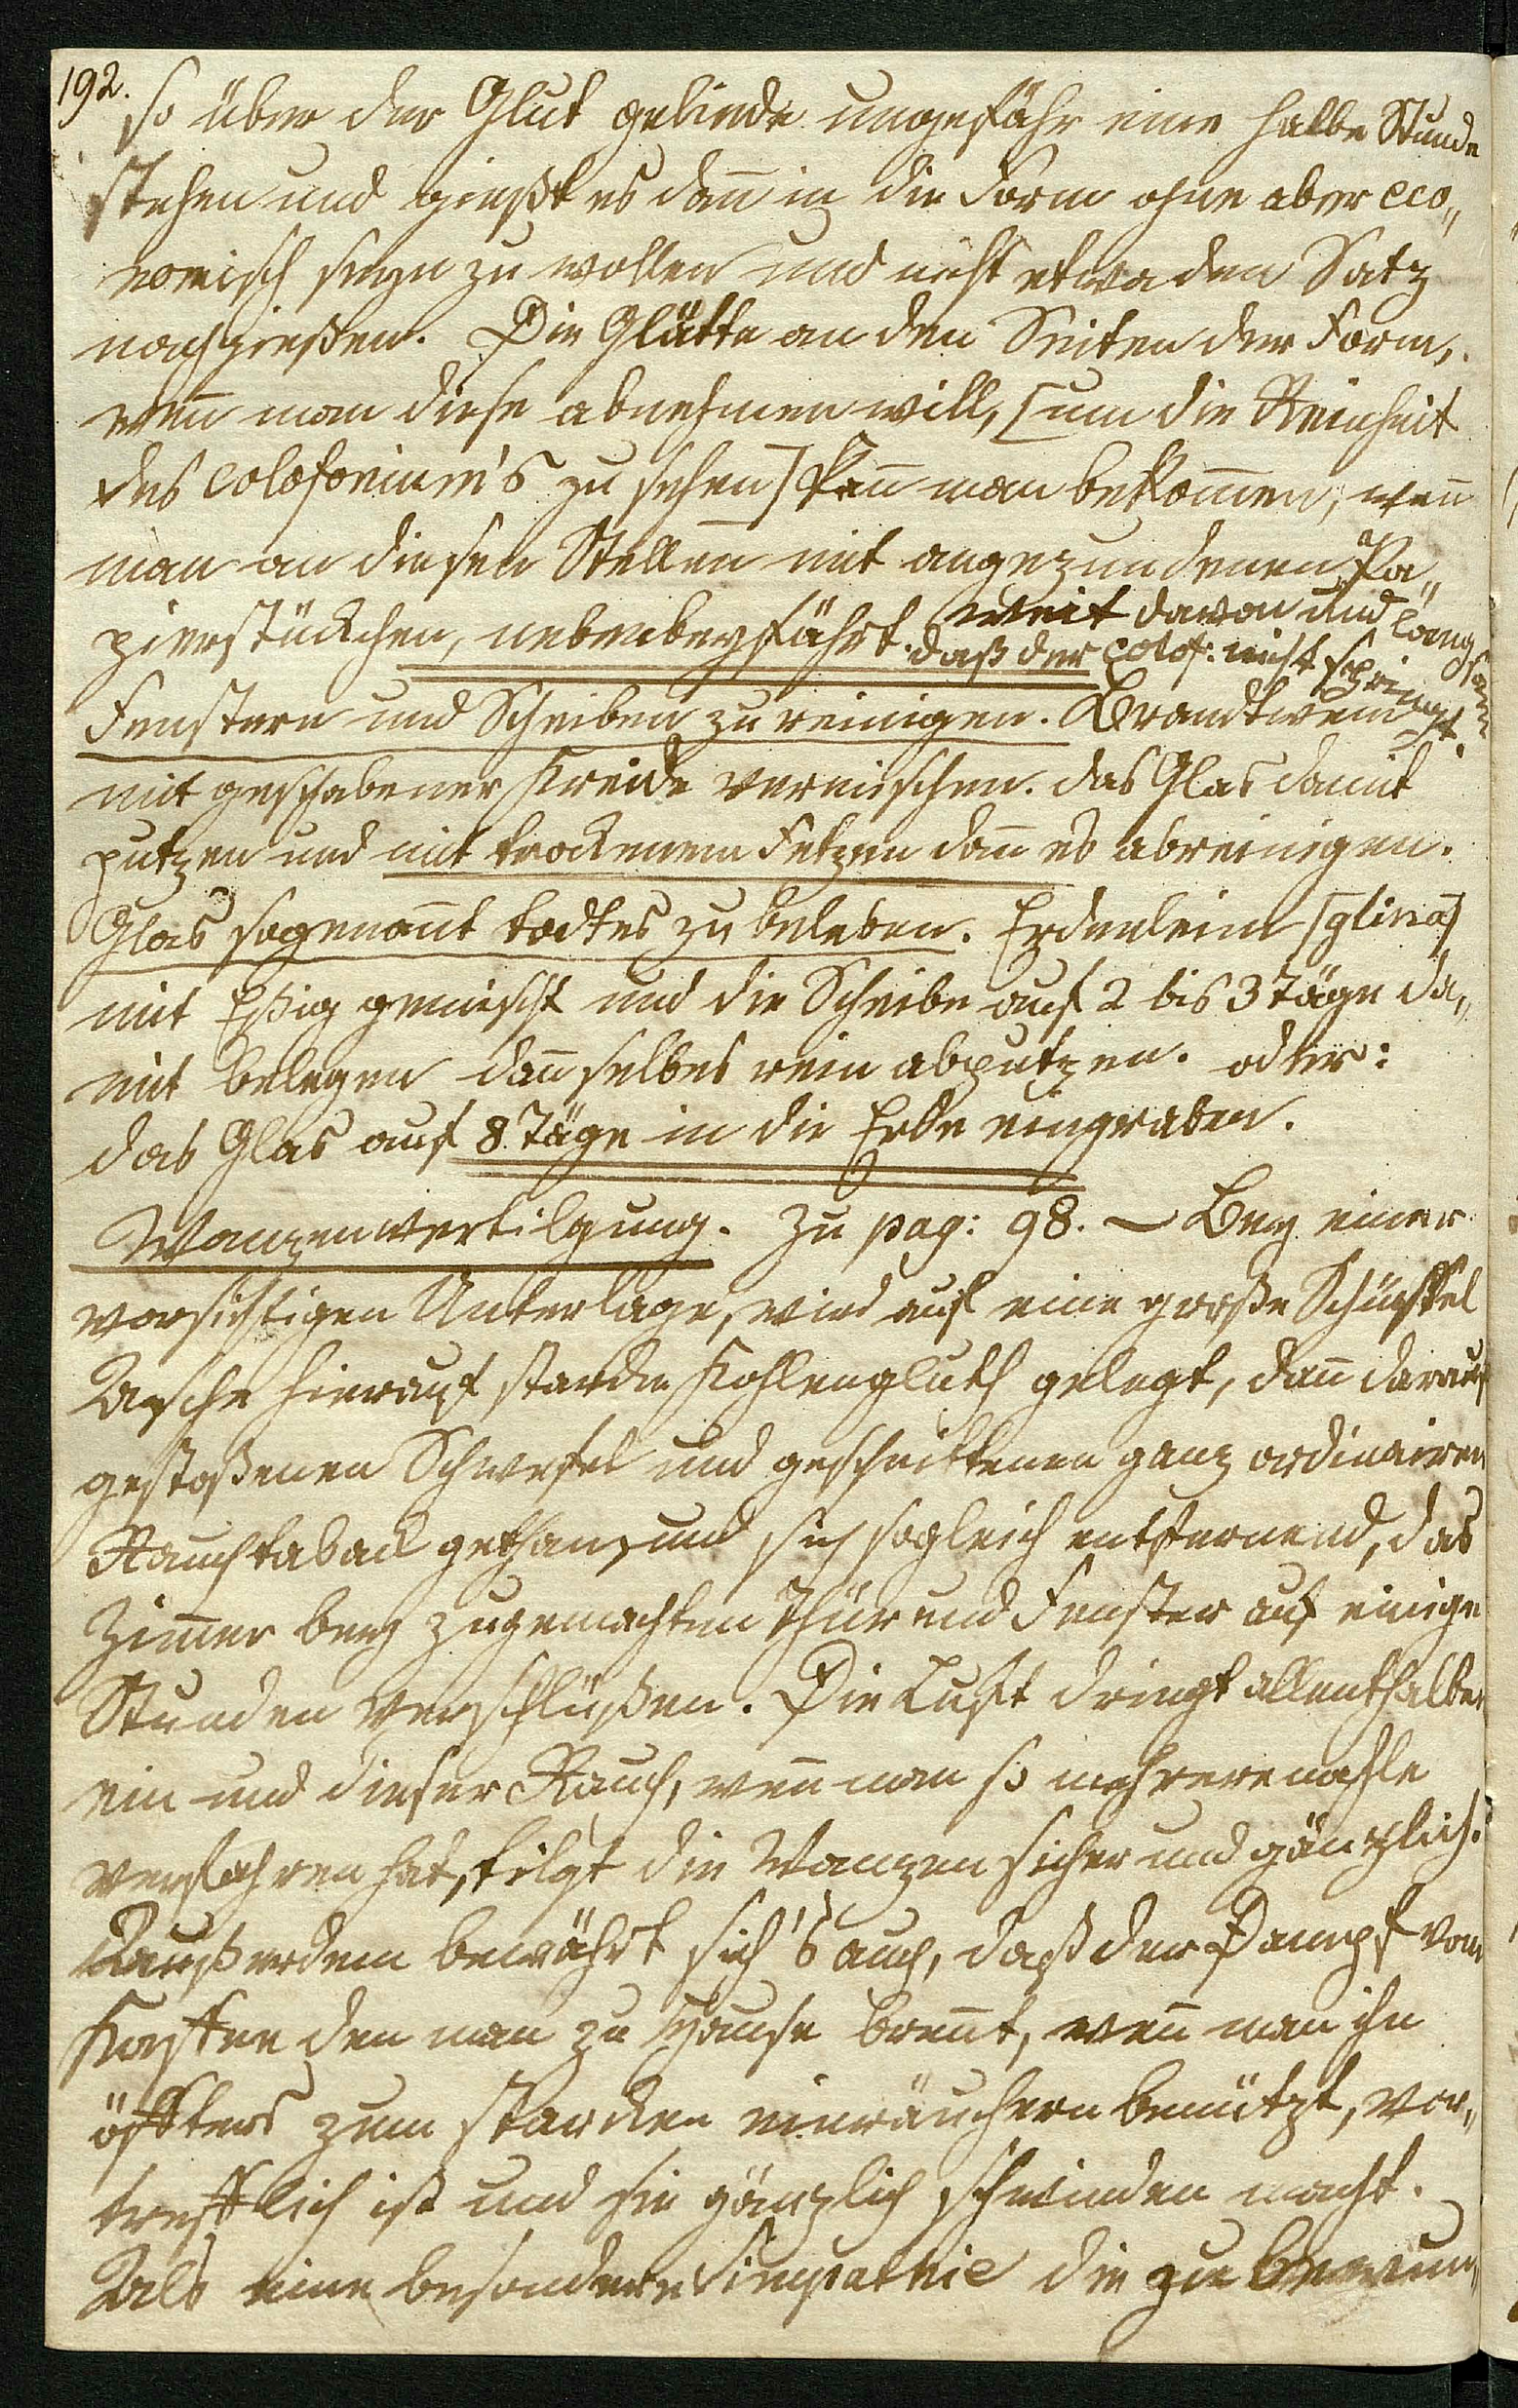 192.
so über der Glut gelinde ungefähr eine halbe Stunde
stehen und gießt es dañ in die Form ohne aber eco„
nomisch seyn zu wollen und nicht etwa den Satz
nachgießen. Die Glätte an den Seiten der Form,
weñ man diese abnehmen will, [um die Reinheit
des colofonium's zu sehen] kañ man bekom̅en, weñ
man an diesen Stellen mit angezundenen Pa„
pierstückchen, nebenbeyfährt. weit davon und langsam
daß der colof: nicht springt.
Fenstern und Scheiben zu reinigen. Brandtwein
mit geschabener Kreide vermischen. das Glas damit
putzen und mit trockenem Fetzen dañ es abreinigen.
Glas sogenañt todtes zu beleben. Erdenleim [glina]
mit Eßig gemischt und die Scheibe auf 2 bis 3 Täge da„
mit belegen dañ selbes rein abputzen. oder:
das Glas auf 8 Täge in die Erde eingraben.
Wanzenvertilgung. Zu pag: 98. – Bey einer
vorsichtigen Unterlage, wird auf eine große Schüssel
Asche hierauf starcke Kohlengluth gelegt, dañ darauf
gestoßenen Schwefel und geschnittenen ganz ordinairen
Rauchtaback gethan, und sich sogleich entfernend, das
Zim̅er bey zugemachten Thür und Fenster auf einige
Stunden verschlüßen. Die Luft dringt allenthalben
ein und dieser Rauch, weñ man so mehreremahle
verfahren hat, tilgt die Wanzen sicher und gänzlich.
Außerdem bewährt sich's auch, daß der Dampf vom
Kaffee den man zu Hause breñt, weñ man ihn
öffters zum starcken einräuchern benützt, vor„
trefflich ist und sie gänzlich schwinden macht.
Als eine besondere Simpathie die zu bewun„